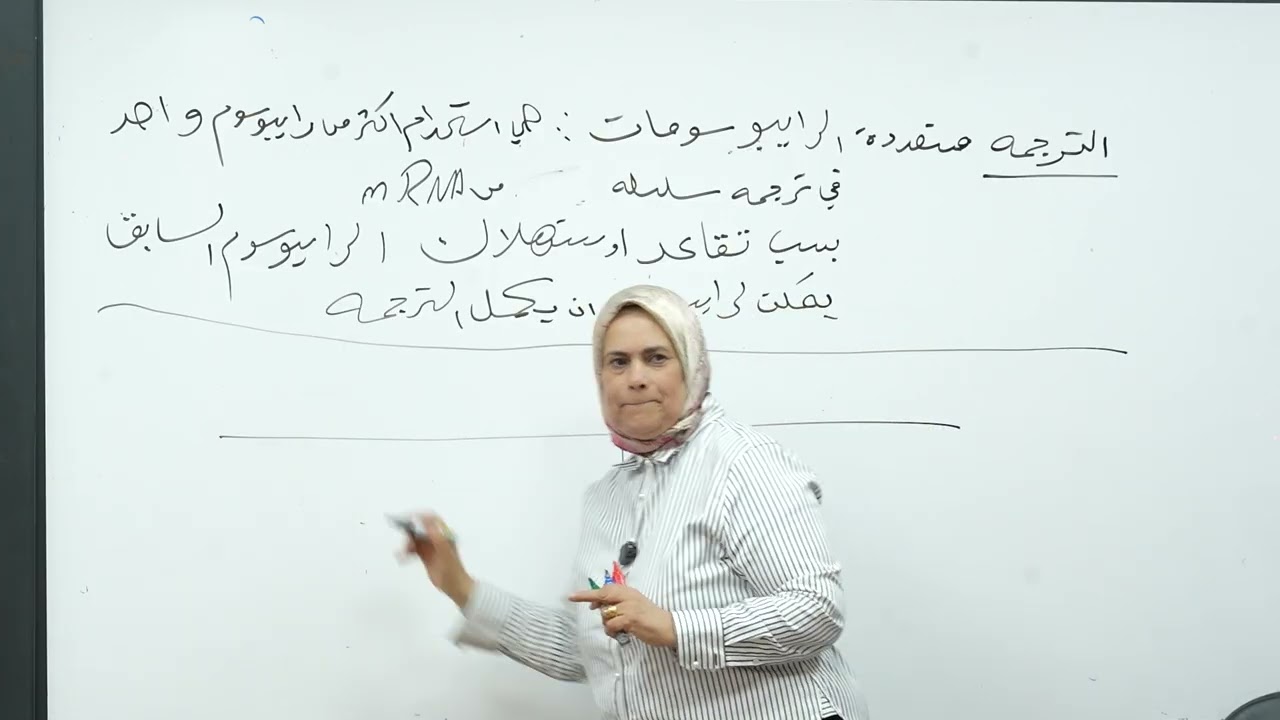 الترجمه متعددة الرايبوسومات : هي استخدام اكثر من رايبوسوم واحد
في ترجمه سلسله من mRNA
بسبب تقاعد او ستهلاك الرايبوسوم السابق
يمكن لرايب ان يكمل الترجمه